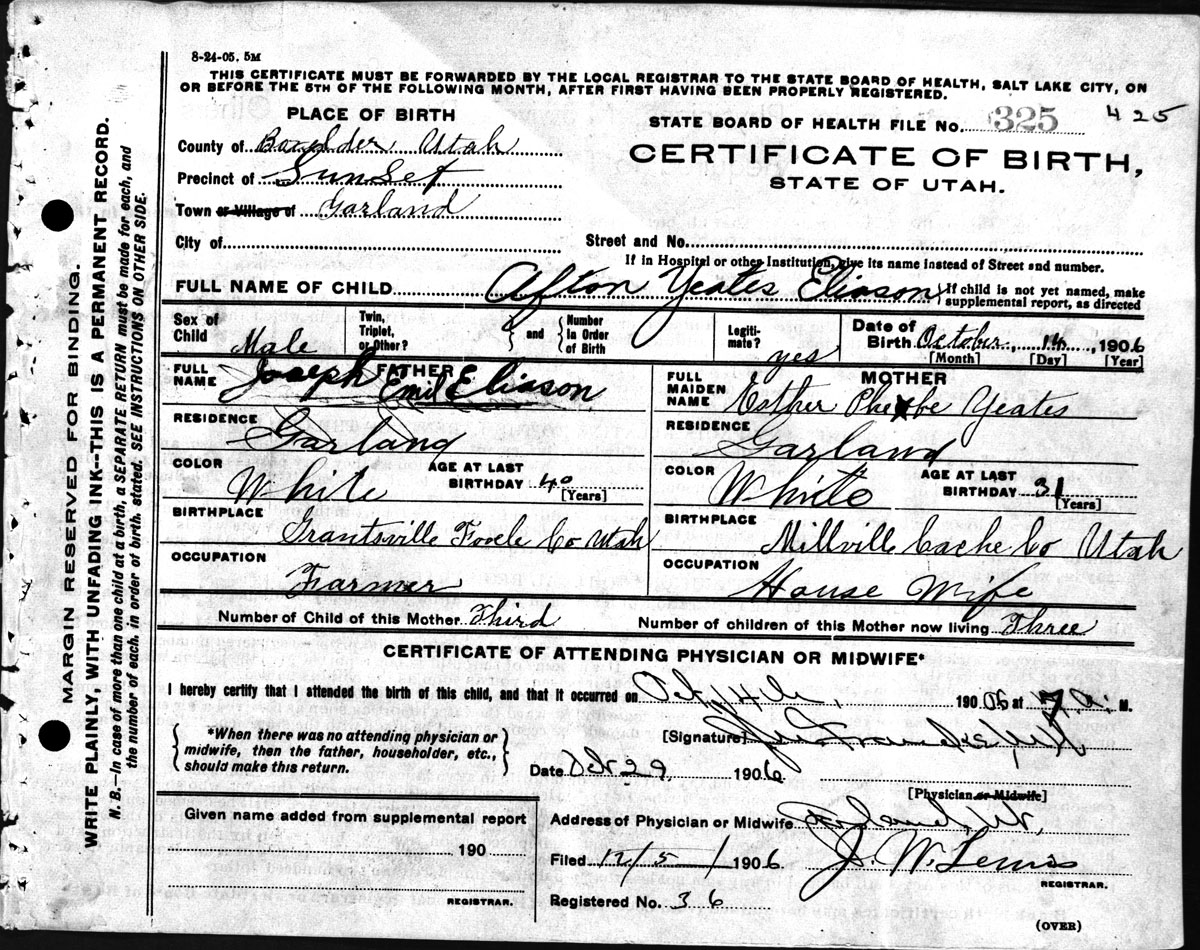 8-24-05. 5M
THIS CERTIFICATE MUST BE FORWARDED BY THE LOCAL REGISTRAR TO THE STATE BOARD OF HEALTH, SALT LAKE CITY, ON
OR BEFORE THE 5TH OF THE FOLLOWING MONTH, AFTER FIRST HAVING BEEN PROPERLY REGISTERED.
PLACE OF BIRTH
STATE BOARD OF HEALTH FILE No. 325 425
County of Boxelder Utah
CERTIFICATE OF BIRTH,
Precinct of Sunset
STATE OF UTAH.
Town or Village of Garland
City of
Street and No.
If in Hospital or other Institution, give its name instead of Street and number.
FULL NAME OF CHILD Afton Yeates Eliason { If child is not yet named, make supplemental report, as directed
Sex of Child Male
Twin, Triplet, or Other? } and { Number in Order of Birth
Legitimate? yes
Date of Birth October 14, 1906
[Month] [Day] [Year]
FATHER
FULL NAME Joseph Emil Eliason
RESIDENCE Garland
COLOR White AGE AT LAST BIRTHDAY 40 [Years]
BIRTHPLACE Grantsville Tooele Co Utah
OCCUPATION Farmer
MOTHER
FULL MAIDEN NAME Esther Phebe Yeates
RESIDENCE Garland
COLOR White AGE AT LAST BIRTHDAY 31 [Years]
BIRTHPLACE Millville Cache Co Utah
OCCUPATION House Wife
Number of Child of this Mother Third Number of children of this Mother now living Three
CERTIFICATE OF ATTENDING PHYSICIAN OR MIDWIFE*
I hereby certify that I attended the birth of this child, and that it occurred on Oct, 14th, 190 06 at 7 a. M.
{ *When there was no attending physician or
midwife, then the father, householder, etc.,
should make this return. }
[Signature]
Date Oct 29, 1906
[Physician or Midwife]
Given name added from supplemental report
190
REGISTRAR.
Address of Physician or Midwife Garland, Ut,
Filed 12/5/1906 J. W. Lewis
REGISTRAR.
Registered No. 36
(OVER)
MARGIN RESERVED FOR BINDING.
WRITE PLAINLY, WITH UNFADING INK--THIS IS A PERMANENT RECORD.
N. B.--In case of more than one child at a birth, a SEPARATE RETURN must be made for each, and
the number of each, in order of birth, stated. SEE INSTRUCTIONS ON OTHER SIDE.